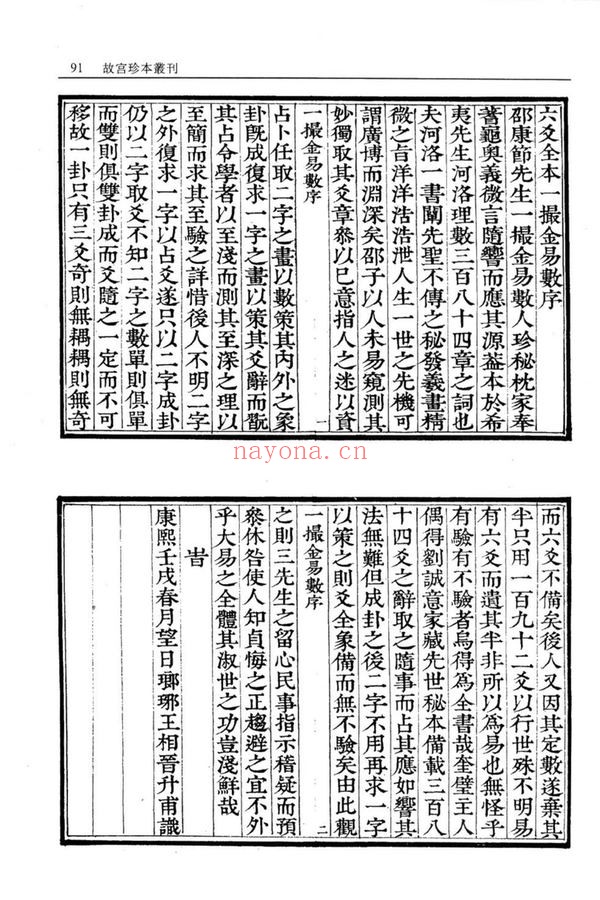 91 故宮珍本叢刊
六爻全本一撮金易數序
邵康節先生一撮金易數人珍秘枕家奉
蓍龜奧義微言隨響而應其源葢本於希
夷先生河洛理數三百八十四章之詞也
夫河洛一書闡先聖不傳之秘發義畫精
微之旨洋洋浩浩泄人生一世之先機可
謂廣博而淵深矣邵子以人未易窺測其
妙獨取其爻章叅以已意指人之迷以資
一撮金易數序
一
占卜任取二字之畫以數策其內外之象
卦旣成復求一字之畫以策其爻辭而翫
其占令學者以至淺而測其至深之理以
至簡而求其至驗之詳惜後人不明二字
之外復求一字以占爻遂只以二字成卦
仍以二字取爻不知二字之數單則俱單
而雙則俱雙卦成而爻隨之一定而不可
移故一卦只有三爻奇則無耦耦則無奇
而六爻不備矣後人又因其定數遂棄其
半只用一百九十二爻以行世殊不明易
有六爻而遺其半非所以為易也無怪乎
有驗有不驗者烏得爲全書哉奎璧主人
偶得劉誠意家藏先世秘本備載三百八
十四爻之辭取之隨事而占其應如響其
法無難但成卦之後二字不用再求一字
以策之則爻全象備而無不驗矣由此觀
一撮金易數序
二
之則三先生之留心民事指示稽疑而預
叅休咎使人知貞悔之正趨避之宜不外
乎大易之全體其淑世之功豈淺鮮哉
旹
康熙壬戌春月望日瑯琊王相晉升甫識
nayona.cn